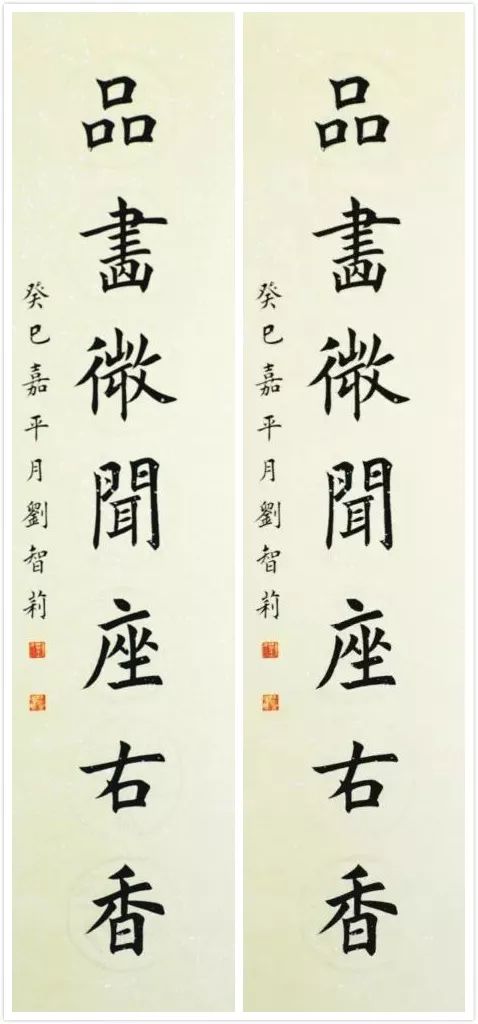 品畵微聞座右香
癸巳嘉平月劉智莉
品畵微聞座右香
癸巳嘉平月劉智莉